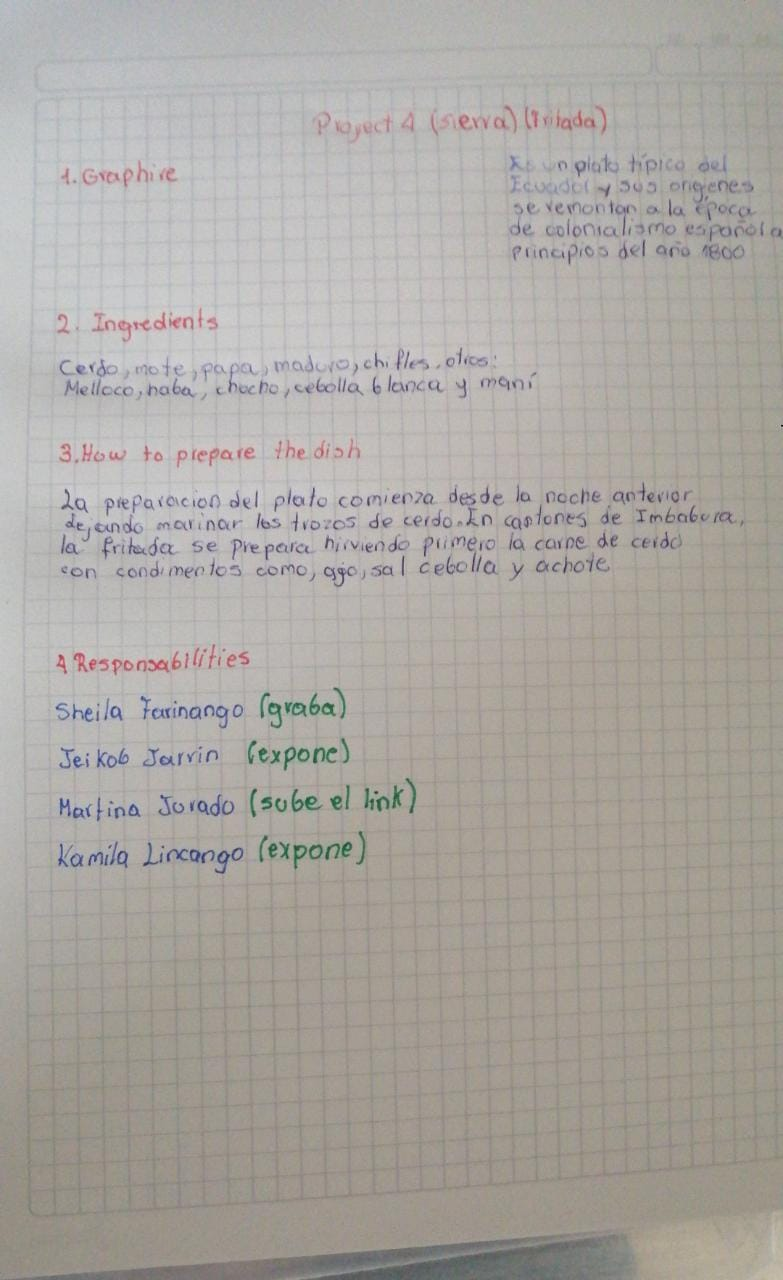 Project 4 (sierra) (fritada)
1. Graphire
Es un plato típico del
Ecuador y sus origenes
se remontan a la época
de colonialismo español a
principios del año 1800
2. Ingredients
Cerdo, mote, papa, maduro, chifles, otros:
Melloco, haba, chocho, cebolla blanca y maní
3. How to prepare the dish
La preparacion del plato comienza desde la noche anterior
dejando marinar los trozos de cerdo. En cantones de Imbabura,
la fritada se prepara hirviendo primero la carne de cerdo
con condimentos como, ajo, sal cebolla y achote
4 Responsabilities
Sheila Farinango (graba)
Jeikob Jarrin (expone)
Martina Jurado (sube el link)
Kamila Lincango (expone)